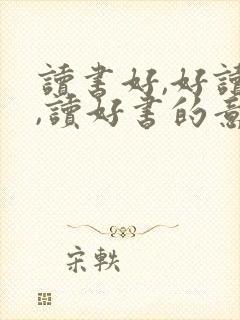 讀書好,好讀
,讀好書的意
宋軼